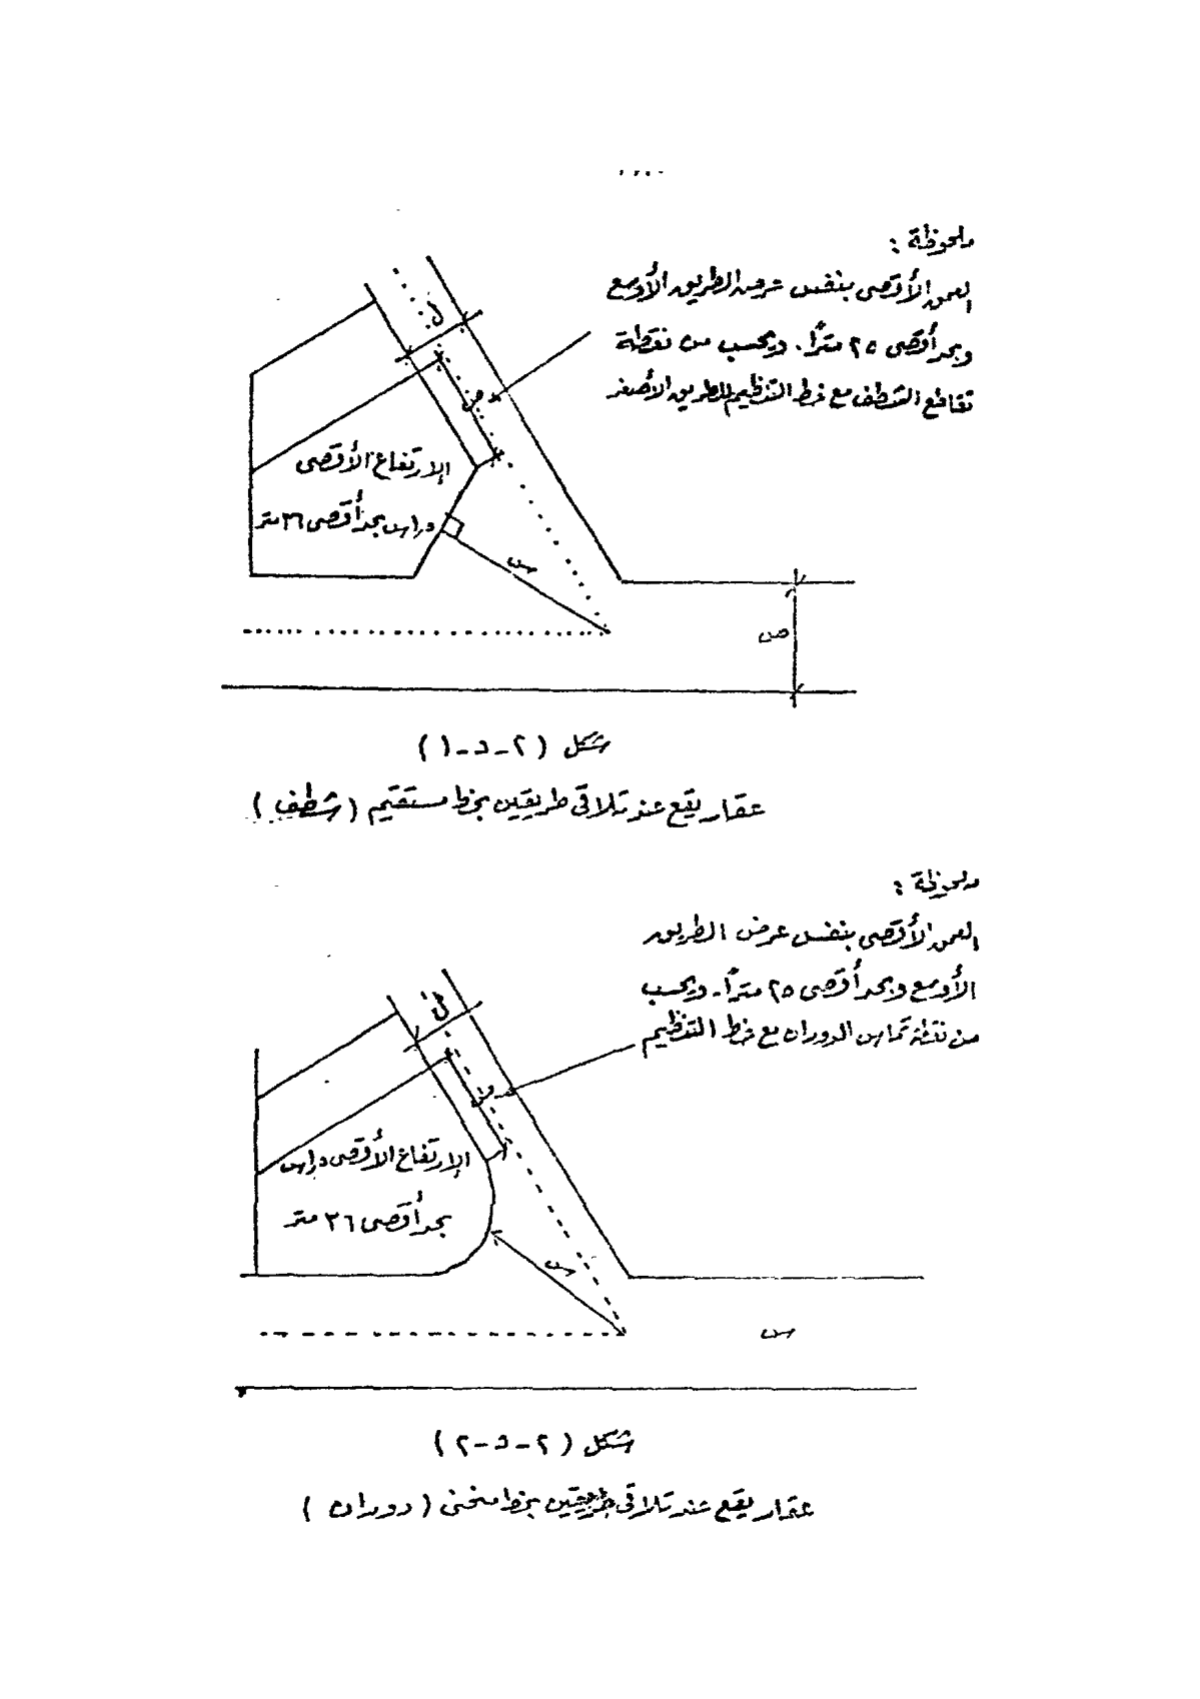 ملحوظة :
العمق الأقصى بنفس عرض الطريق الأوسع
وبحد أقصى ٢٥ مترًا. ويحسب من نقطة
تقاطع الشطف مع خط التنظيم للطريق الأصغر
ل
ص
الارتفاع الأقصى
بحد أقصى ٣٦ متر
س
ص
شكل (٢-٥-١)
عقار يقع عند تلاقى طريقين بخط مستقيم (شطف)
ملحوظة :
العمق الأقصى بنفس عرض الطريق
الأوسع وبحد أقصى ٢٥ مترًا. ويحسب
من نقطة تماس الدوران مع خط التنظيم
ل
الارتفاع الأقصى
بحد أقصى ٣٦ متر
س
شكل (٢-٥-٢)
عقار يقع عند تلاقى طريقين بخط منحنى (دوران)